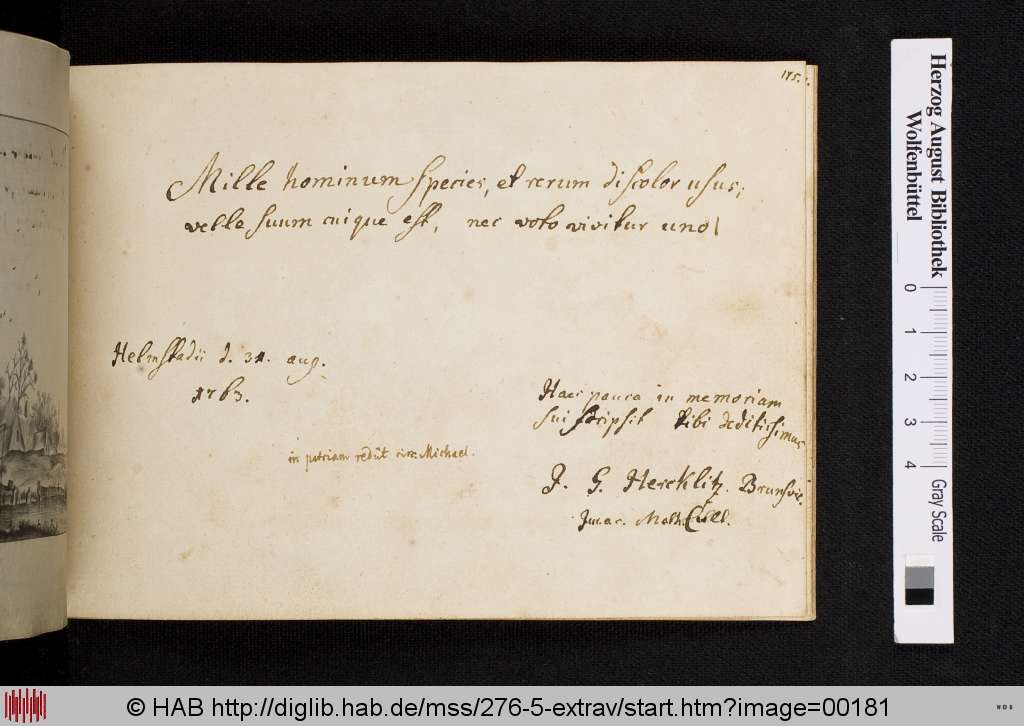 175.
Mille hominum species, et rerum discolor usus;
velle suum cuique est, nec voto vivitur uno
Helmstadii d. 31. aug.
1763.
Haec pauca in memoriam
sui scripsit tibi deditissimus
J. G. Hercklitz. Brunsvic.
Math. Cult.
in patriam rediit circ. Michael.
Herzog August Bibliothek
Wolfenbüttel
0 1 2 3 4
Gray Scale
© HAB http://diglib.hab.de/mss/276-5-extrav/start.htm?image=00181
WDB